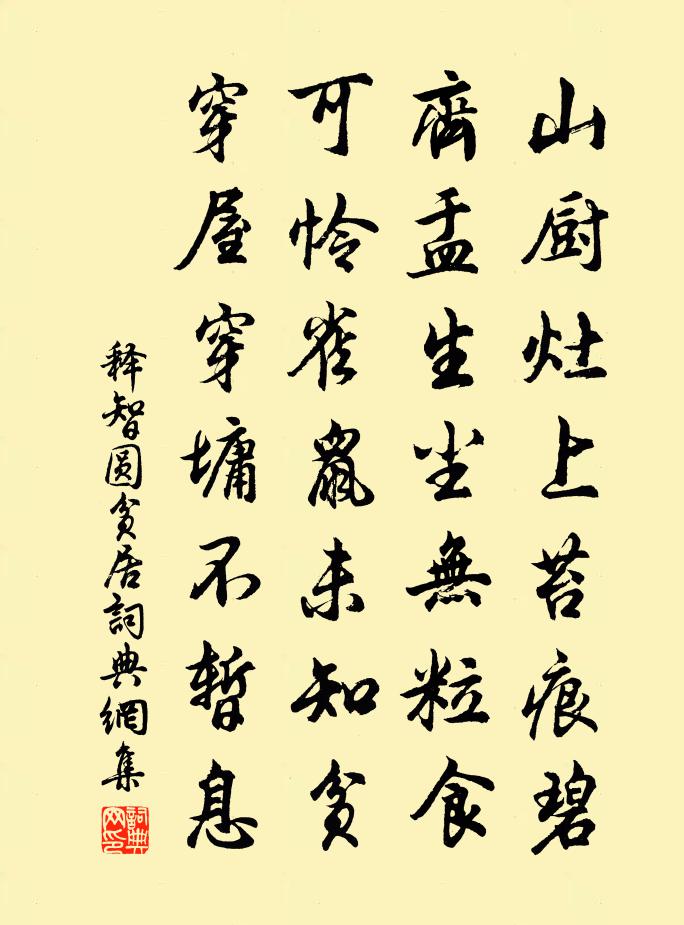 山厨灶上苔痕碧
齊盂生尘無粒食
可怜雀鼠未知贫
穿屋穿墉不暫息
释智圆贫居詞典網集
詞典网印